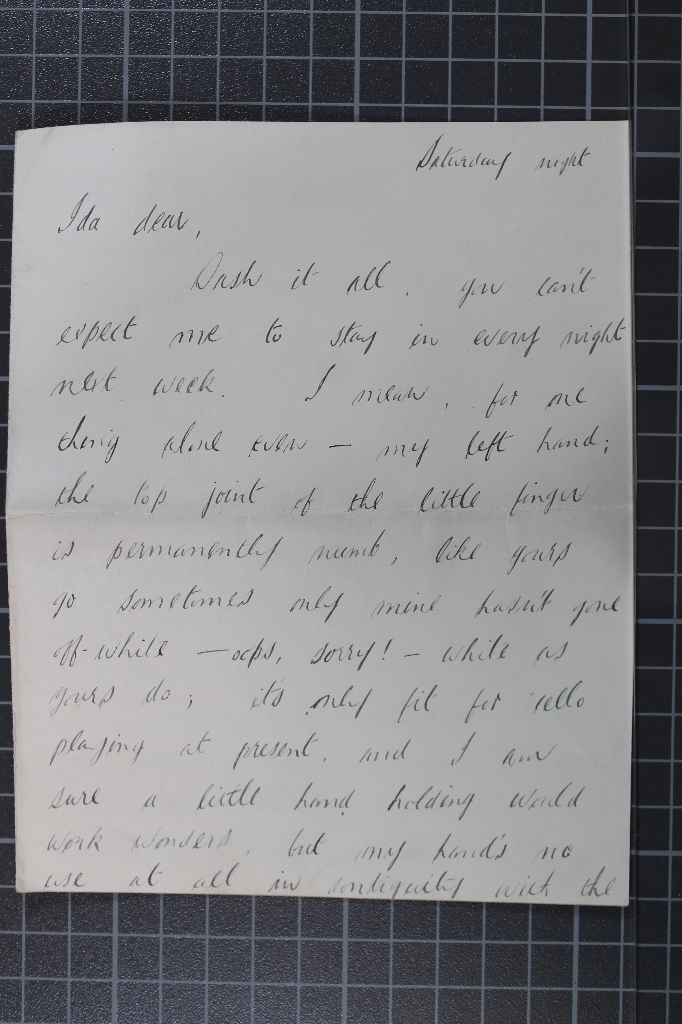 Saturday night
Ida dear,
Dash it all, you can't
expect me to stay in every night
next week. I mean, for one
thing alone even — my left hand;
the top joint of the little finger
is permanently numb, like yours
go sometimes only mine hasn't gone
off-white — oops, sorry! — white as
yours do; it's only fit for 'cello
playing at present, and I am
sure a little hand holding would
work wonders, but my hand's no
use at all in contiguity with the